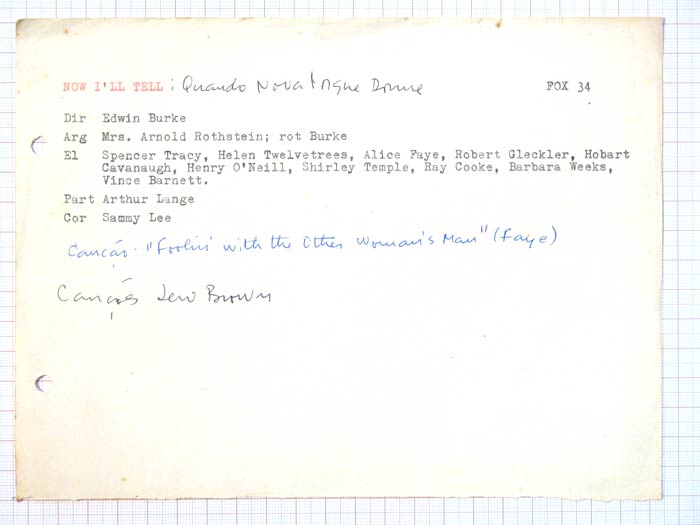 NOW I'LL TELL : Quando Nova York Dorme FOX 34
Dir Edwin Burke
Arg Mrs. Arnold Rothstein; rot Burke
El Spencer Tracy, Helen Twelvetrees, Alice Faye, Robert Gleckler, Hobart
Cavanaugh, Henry O'Neill, Shirley Temple, Ray Cooke, Barbara Weeks,
Vince Barnett.
Part Arthur Lange
Cor Sammy Lee
Canção: "Foolin' with the Other Woman's Man" (Faye)
Canções Lew Brown